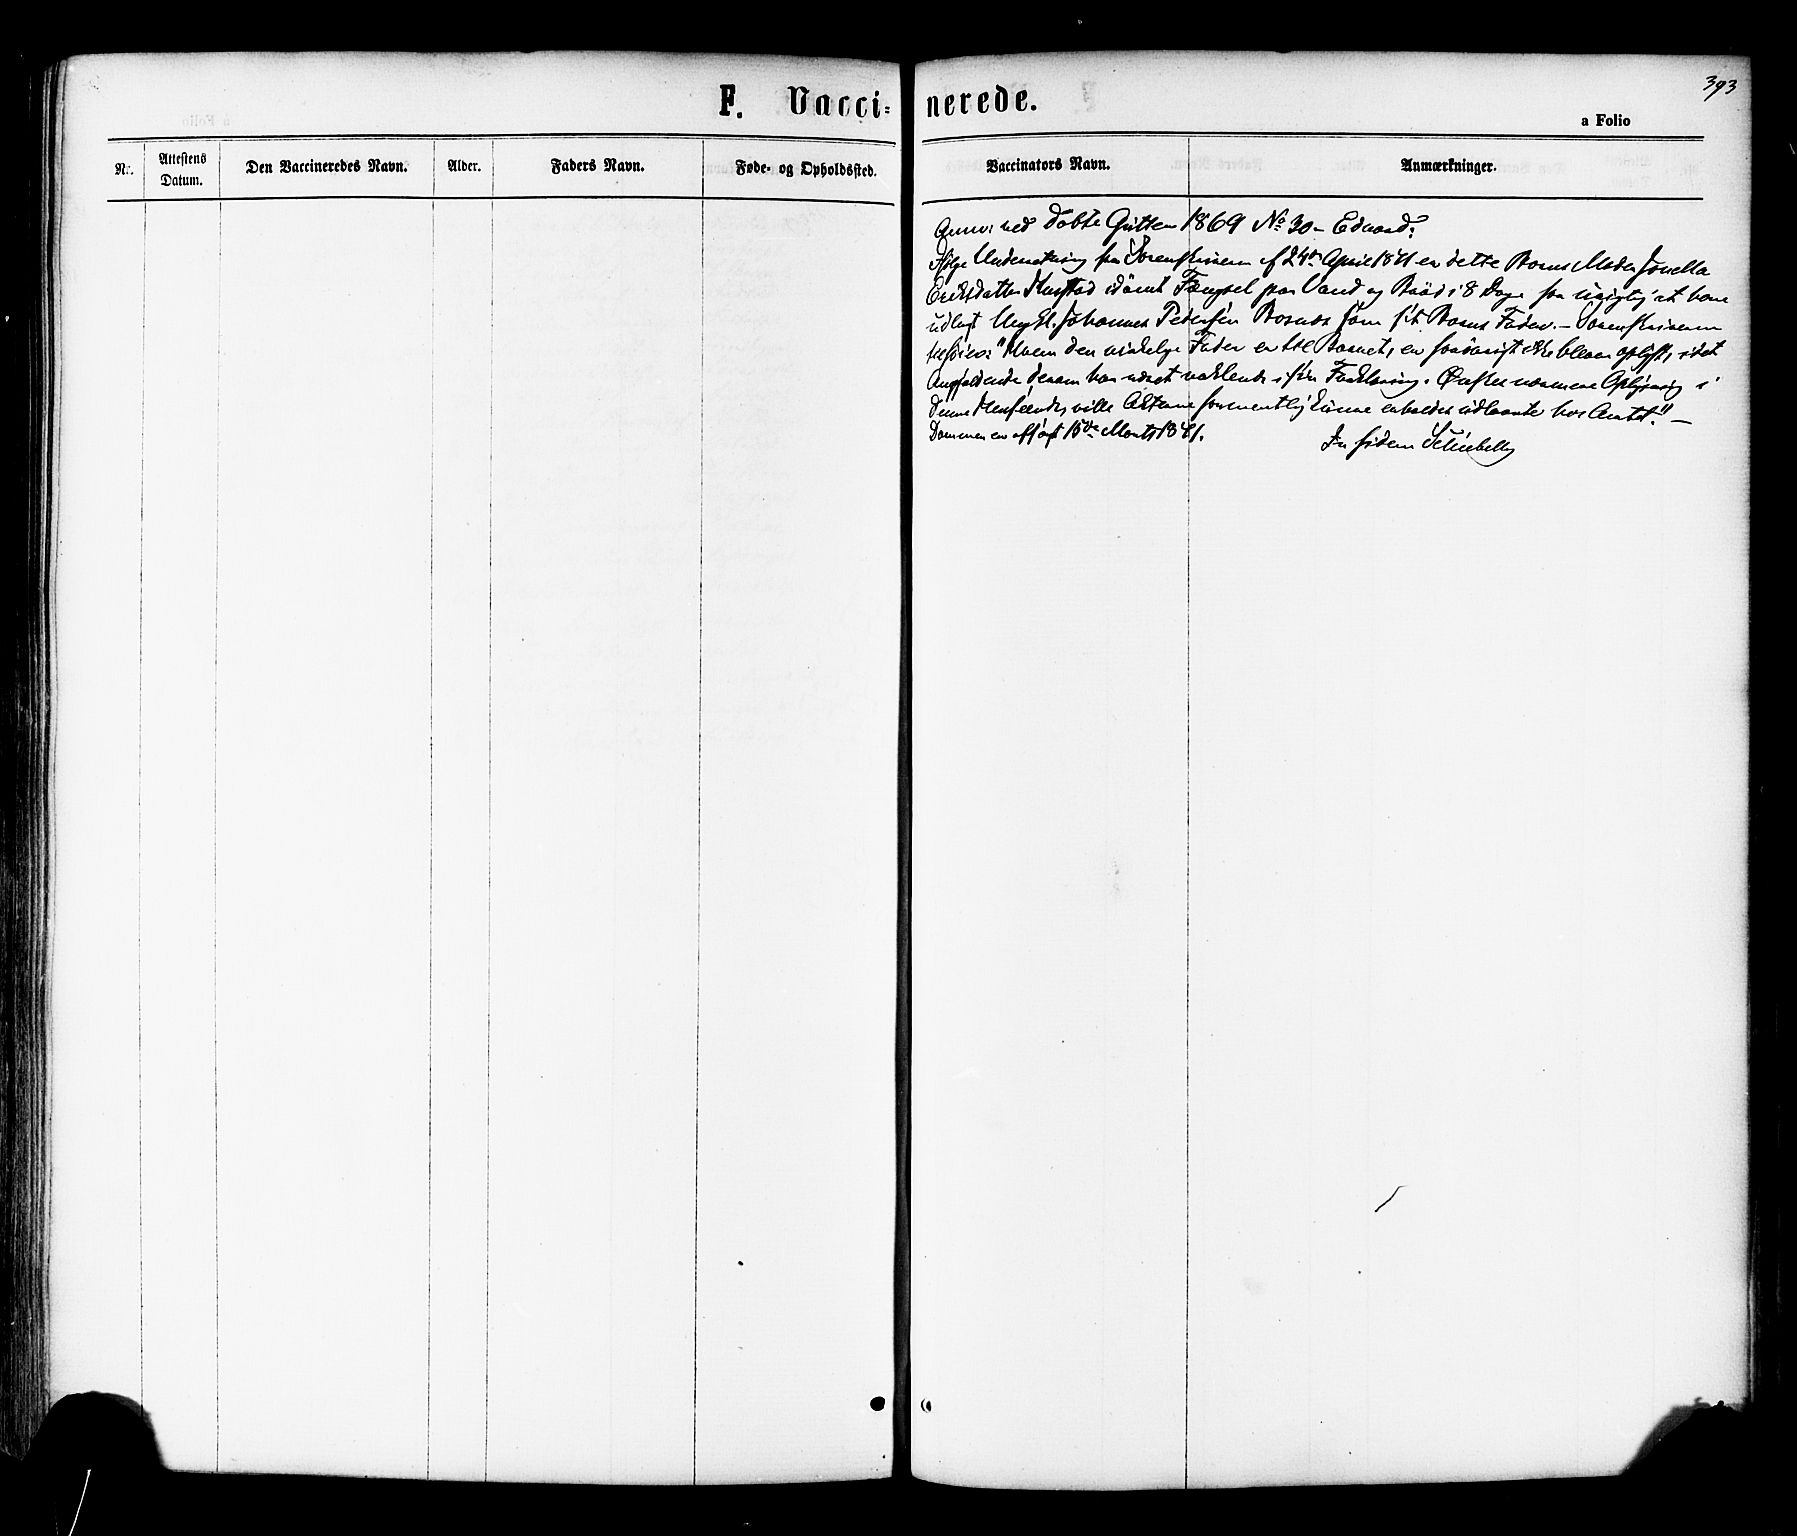 393
F. Vaccinerede.
a Folio
Nr.
Attestens Datum.
Den Vaccineredes Navn.
Alder.
Faders Navn.
Føde- og Opholdssted.
Vaccinators Navn.
Anmærkninger.
Anm: ved døbte Gutter 1869 No 30 - Edvard:
Ifølge Underretning fra Sorenskriveren af 24de April 1871 er dette Barns Moder
Eriksdatter idømt Fængsel paa Vand og Brød i 8 Dage for urigtig at have
udlagt Ungkl. Johannes Pedersen som sit Barns Fader. - Sorenskriveren
tilføier: "Hvem den virkelige Fader er til Barnet, er forøvrigt ikke bleven oplyst, idet
Angjældende derom har været vaklende i sin Forklaring. Ønskes nærmere Oplysning i
denne Henseende, ville Akterne formentlig kunne erholdes udlaante hos Amtet." -
Dommen er afsagt 15de Marts 1871.
In fidem